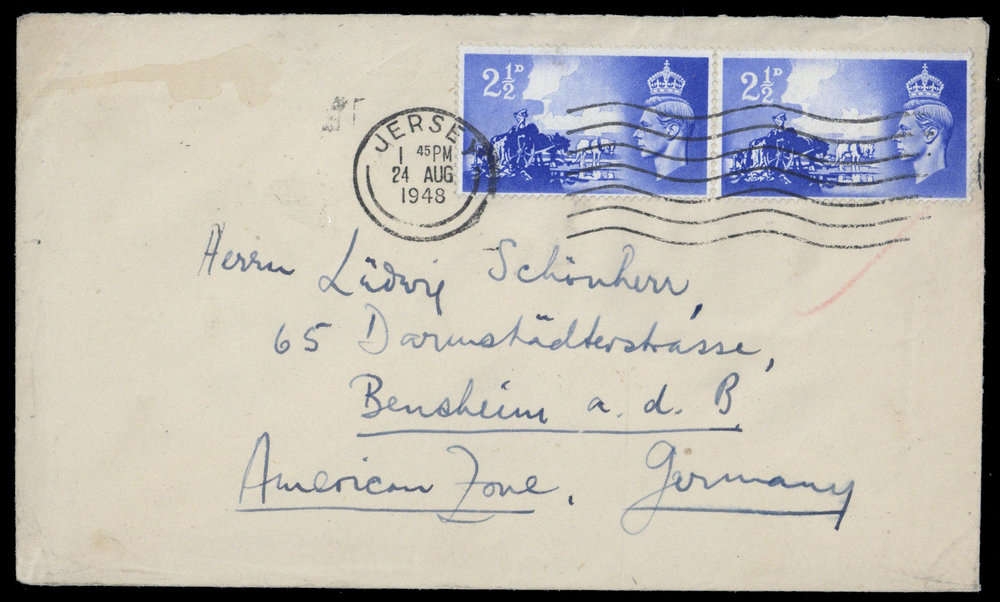 2½D 2½D
JERSEY
1 45PM
24 AUG
1948
Herrn Lüdwig Schönherr,
65 Darmstädterstrasse,
Bensheim a. d. B
American Zone, Germany